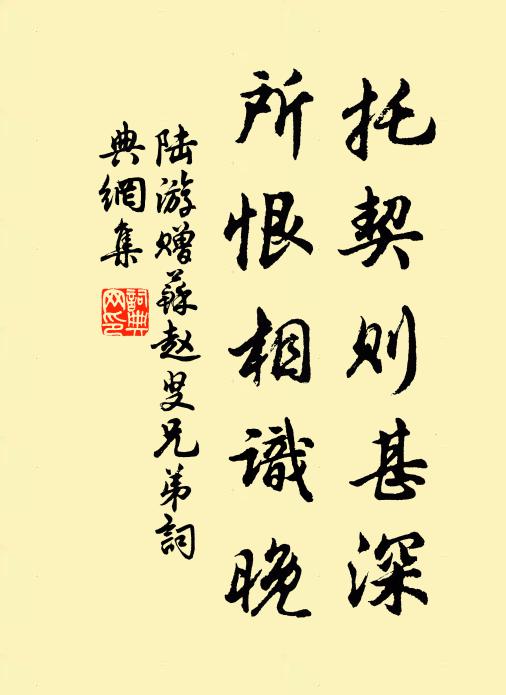 托契则甚深
所恨相識晚
陆游赠蘇赵叟兄弟詞
典網集
詞典
网印